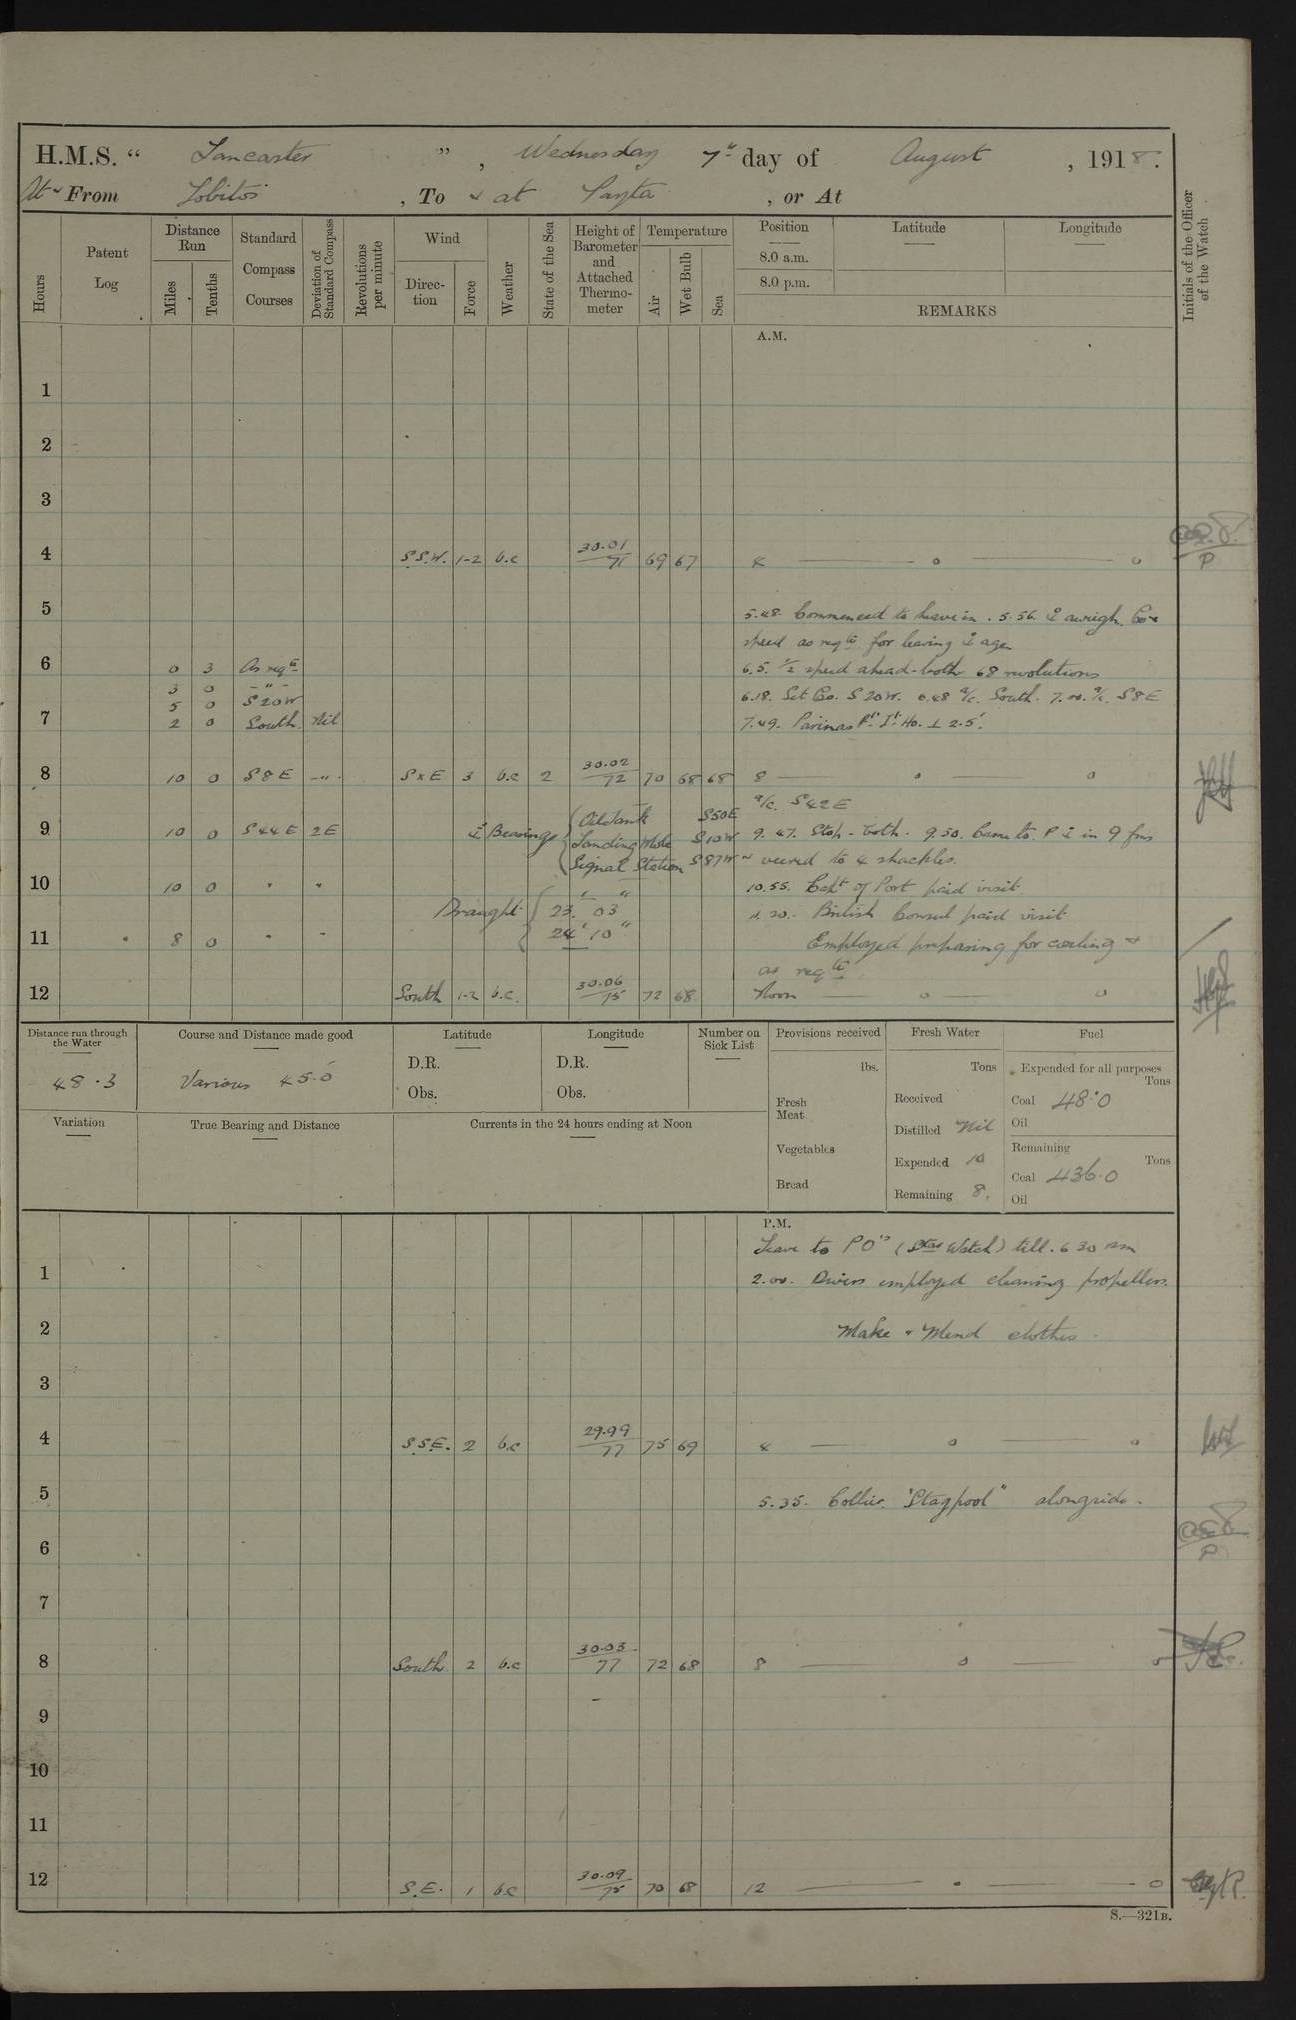 H.M.S. “ Lancaster ” , Wednesday 7th day of August , 1918.
At & From Lobitos , To & at Payta , or At
Hours
Patent Log
Distance Run
Miles
Tenths
Standard Compass Courses
Deviation of Standard Compass
Revolutions per minute
Wind
Direction
Force
Weather
State of the Sea
Height of Barometer and Attached Thermometer
Temperature
Air
Wet Bulb
Sea
Position
8.0 a.m.
8.0 p.m.
Latitude
Longitude
REMARKS
Initials of the Officer of the Watch
A.M.
1
2
3
4 S.S.W. 1-2 b.c 30.01 71 69 67 4 — o — o
P
5 5.48. Commenced to heave in. 5.56. ⚓ aweigh. Co &
speed as reqte for leaving ⚓ age
6 0 3 As reqte 6.5. ½ speed ahead - both 68 revolutions
3 0 - " -
5 0 S 20 W 6.18. Set Co. S 20 W. 6.48 a/c. South. 7.00. a/c. S 8 E
7 2 0 South Nil 7.49. Parinas Pt. Lt. Ho. ⊥ 2.5'.
8 10 0 S 8 E - " - S x E 3 b.c 2 30.02 72 70 68 68 8 — o — o
a/c. S 42 E
9 10 0 S 44 E 2 E ⚓ Bearings { Oil Tank S 50 E
Landing Mole S 10 W 9.47. Stop - both. 9.50. Came to. P ⚓ in 9 fms
Signal Station S 87 W ~ veered to 4 shackles.
10 10 0 " " 10.55. Capt of Port paid visit
Draught { 23' 03"
24' 10"
British Consul paid visit
11 8 0 " " Employed preparing for coaling &
as reqte
12 South 1-2 b.c. 30.06 75 72 68 Noon — o — o
Distance run through the Water
48.3
Course and Distance made good
Various 45.0
Latitude
D.R.
Obs.
Longitude
D.R.
Obs.
Number on Sick List
Provisions received
lbs.
Fresh Meat
Vegetables
Bread
Fresh Water
Tons
Received
Distilled Nil
Expended 10
Remaining 8.
Fuel
Expended for all purposes
Tons
Coal 48.0
Oil
Remaining
Tons
Coal 436.0
Oil
Variation
True Bearing and Distance
Currents in the 24 hours ending at Noon
P.M.
Leave to POs (Watch) till 6 30 am
1 2.00. Divers employed cleaning propellers.
2 Make & Mend clothes.
3
4 S.S.E. 2 b.c 29.99 77 75 69 4 — o — o
5 5.35. Collier "Stagpool" alongside.
6
P
7
8 South 2 b.c 30.03 77 72 68 8 — o — o
9
10
11
12 S.E. 1 b.c 30.09 75 70 68 12 — o — o
S.—321B.